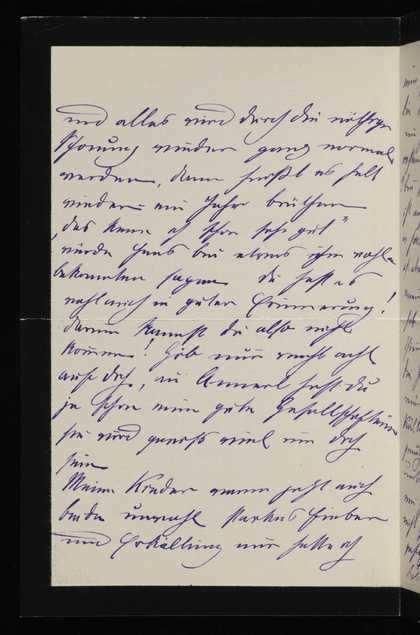 und alles wird durch die nöthige
Schonung wieder ganz normal
werden, dann heißt es halt
wieder ein Jahr brüthen
„das kenn ich schon sehr gut"
würde Hans bei etwas ihm wohl
bekannten sagen du hast es
wohl auch in guter Erinnerung!
darum kannst du also nicht
kommen! Gib nur recht acht
auf dich, in Annerl hast du
ja schon eine gute Gesellschafterin
sie wird gewiß viel um dich
sein
Meine Kinder waren jetzt auch
beide unwohl starkes Fieber
und Erkältung nur hatte ich